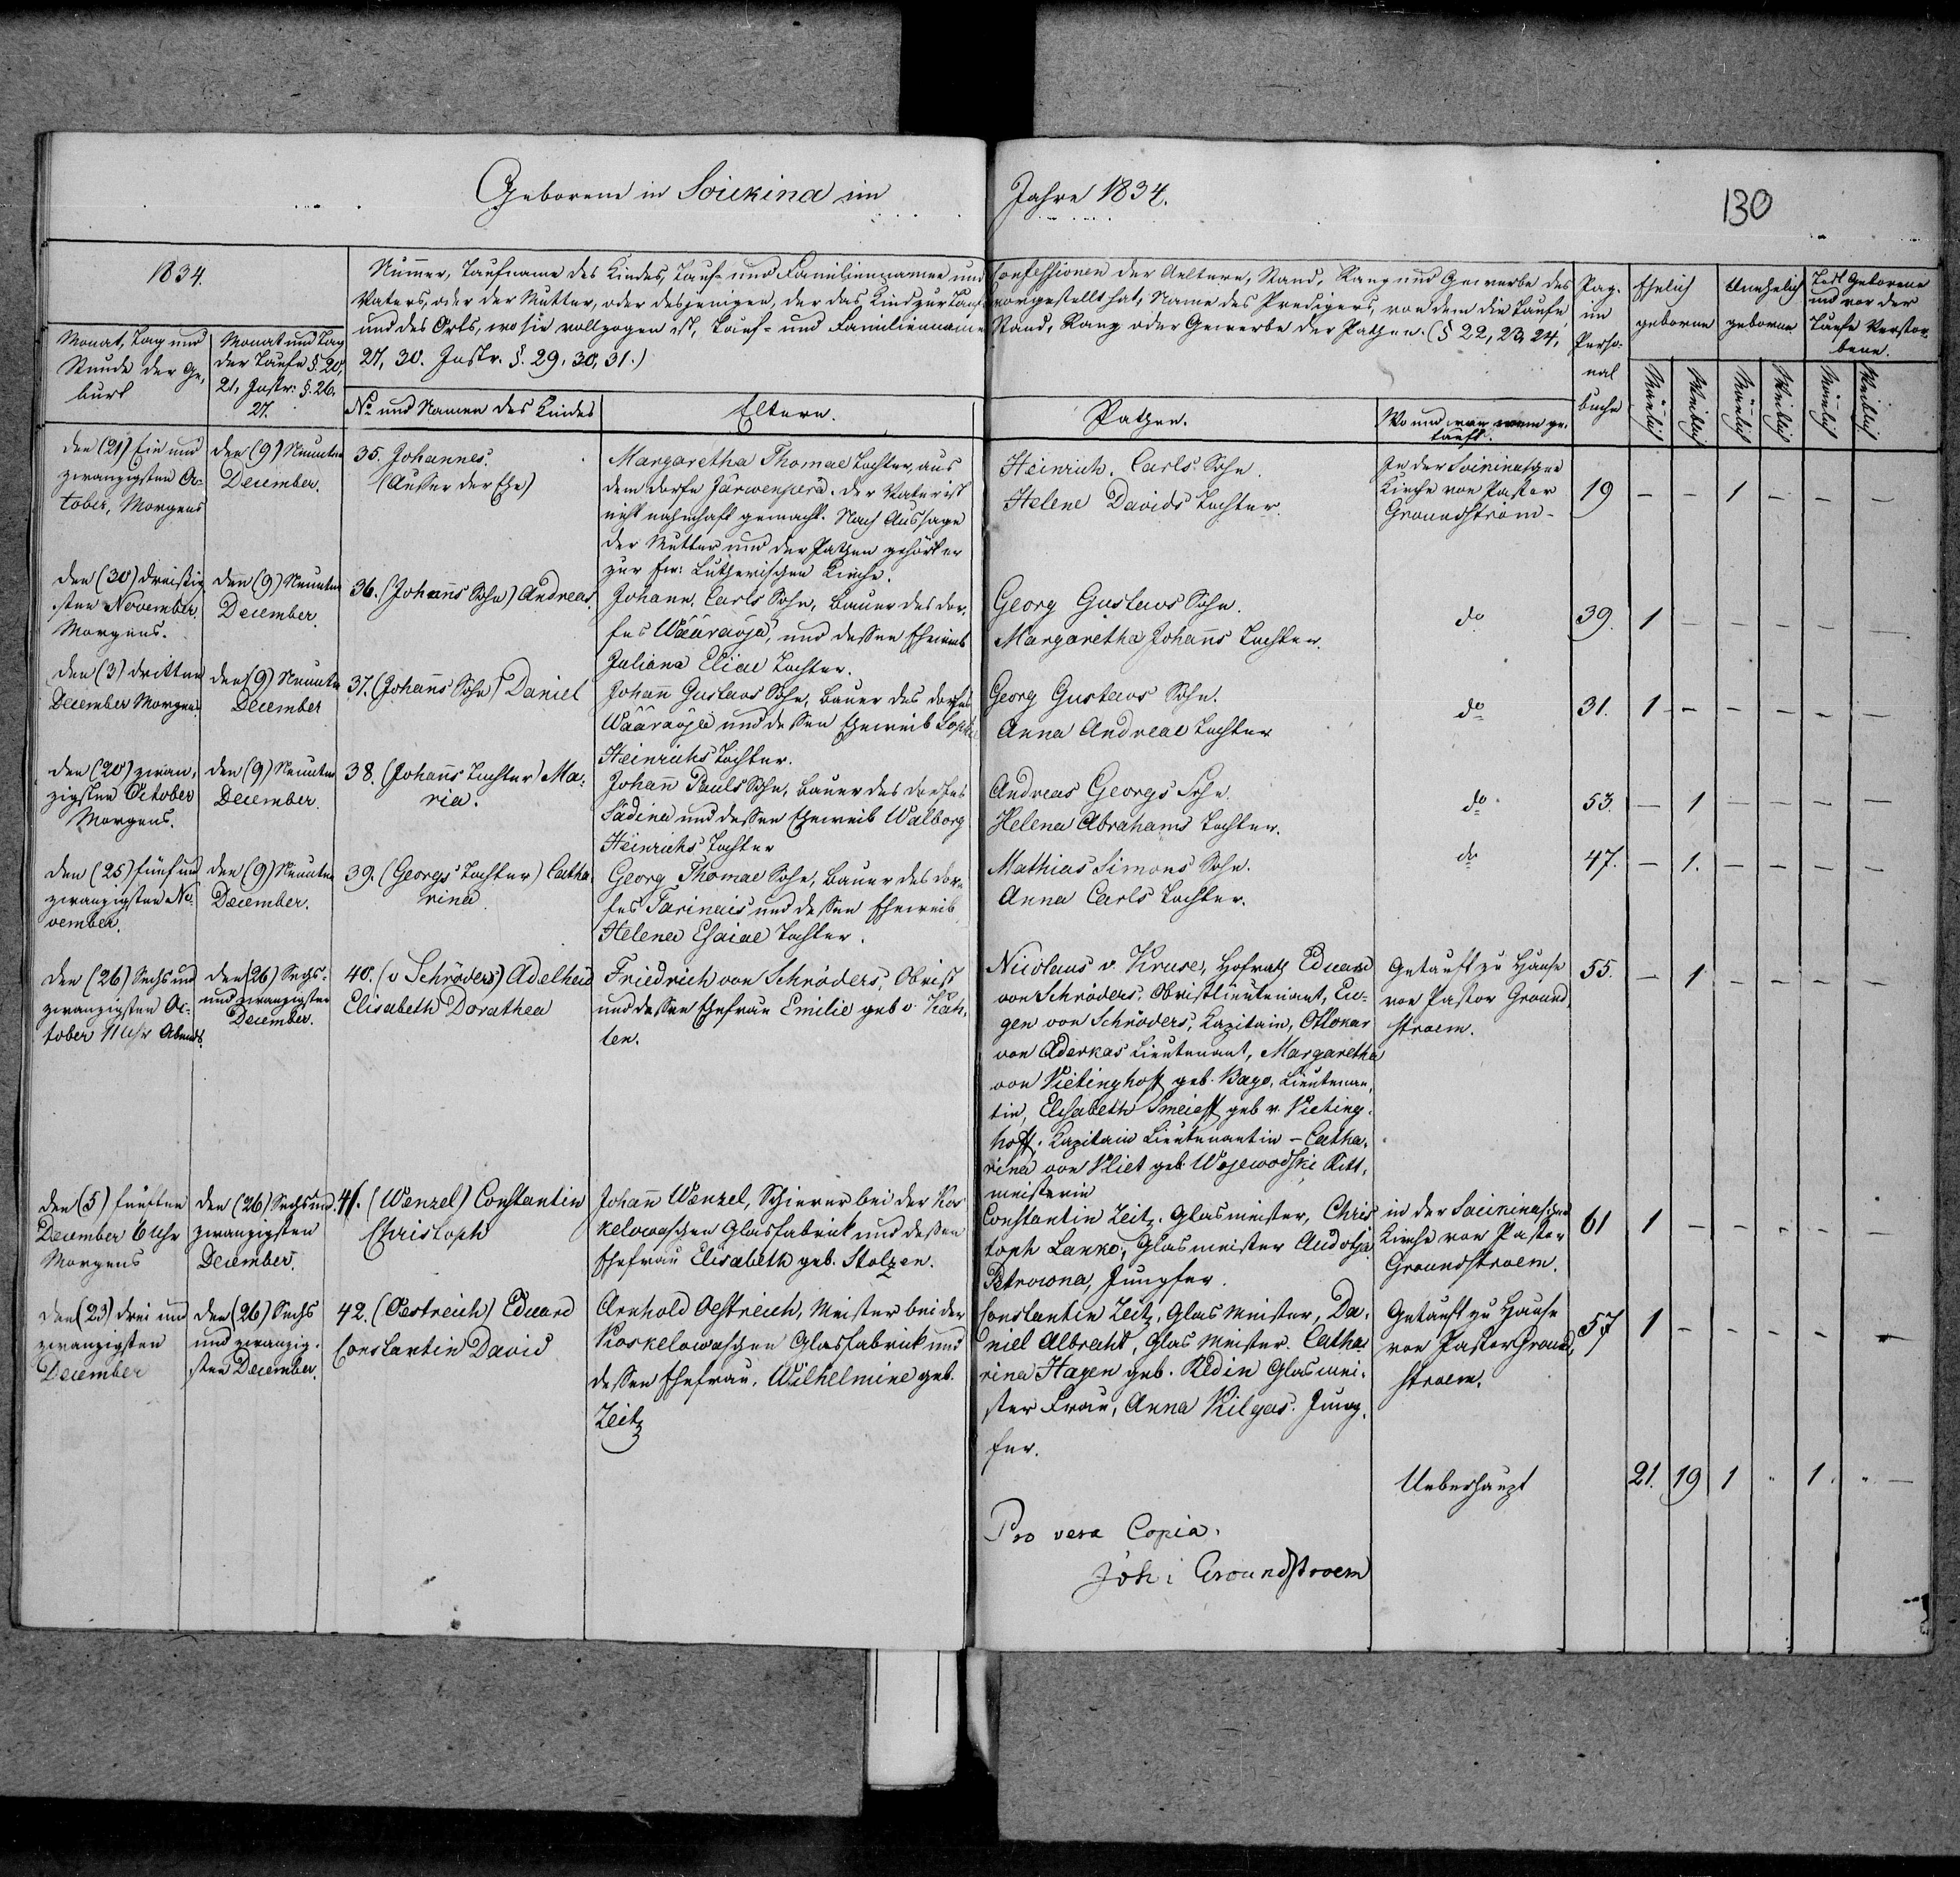 Geborene in Soikina im Jahre 1834.
130
1834.
Monat, Tag und
Stunde der Ge-
burt
Monat und Tag
der Taufe §. 20,
21, Instr: §. 26.
27.
Nummer, Taufname des Kindes, Tauf- und Familiennamen und Confessionen der Aeltern, Stand, Rang und Gewerbe des
Vaters, oder der Mutter, oder desjenigen, der das Kind zur Taufe vorgestellt hat, Name des Predigers, von dem die Taufe
und des Orts, wo sie vollzogen ist, Tauf- und Familienname Stand, Rang oder Gewerbe der Pathen. (§ 22, 23, 24,
27, 30. Instr. §. 29, 30, 31.)
No und Namen des Kindes
Eltern.
Pathen.
Wo und von wem ge-
tauft.
Pag.
im
Perso-
nal
buche
Ehelich
geborne
Unehelich
geborne
Todt Geborene
und vor der
Taufe Verstor-
bene.
Männlich
Weiblich
Männlich
Weiblich
Männlich
Weiblich
den (21) Ein und
zwanzigsten Oc-
tober, Morgens
den (9) Neunten
December.
35. Johannes.
(Ausser der Ehe)
Margaretha Thomae Tochter, aus
dem Dorfe Järwenperä. Der Vater ist
nicht nahmhaft gemacht. Nach Aussage
der Mutter und der Pathen gehört er
zur Ew: Lutherischen Kirche.
Heinrich. Carls Sohn.
Helene Davids Tochter.
In der Soikinaschen
Kirche von Pastor
Groundström-
19 - - 1 - - -
den (30) dreisig-
sten November.
Morgens.
den (9) Neunten
December.
36. (Johanns Sohn) Andreas.
Johann. Carls Sohn, Bauer des Dor-
fes Wääräoja, und dessen Eheweib
Juliana Eliae Tochter.
Georg Gustavs Sohn.
Margaretha Johanns Tochter.
do
39. 1 - - - - -
den (3) dritten
December Morgens
den (9) Neunten
December
37. (Johanns Sohn) Daniel
Johann Gustavs Sohn, Bauer des Dorfes
Wääräoja und dessen Eheweib Sophie
Heinrichs Tochter.
Georg Gustavs Sohn.
Anna Andreae Tochter
do
31. 1 - - - - -
den (20) zwan-
zigsten October
Morgens.
den (9) Neunten
December.
38. (Johanns Tochter) Ma-
ria.
Johann Pauls Sohn, Bauer des Dorfes
Sädina und dessen Eheweib Walborg
Heinrichs Tochter
Andreas Georgs Sohn.
Helena Abrahams Tochter.
do
53 - 1 - - - -
den (25) fünf und
zwanzigsten No-
vember.
den (9) Neunten
December.
39. (Georgs Tochter) Catha-
rina
Georg Thomae Sohn, Bauer des Dor-
fes Tarinais und dessen Eheweib
Helena Esaiae Tochter.
Mathias Simons Sohn.
Anna Carls Tochter.
do
47. - 1. - - - -
den (26) Sechs und
zwanzigsten Oc-
tober 11 Uhr Abends.
den (26) Sechs-
und zwanzigsten
December.
40. (v Schröders) Adelheid
Elisabeth Dorathea
Friedrich von Schröders, Obrist
und dessen Ehefrau Emilie geb v. Kah-
len.
Nicolaus v. Kruse, Hofrath Eduard
von Schröders, Obristlieutenant, Eu-
gen von Schröders, Kapitain, Ottokar
von Aderkas Lieutenant, Margaretha
von Vietinghoff geb. Bago, Lieutenan-
tin, Elisabeth Smeieff geb v. Vieting-
hoff, Kapitain Lieutenantin - Catha-
rina von Vliet geb. Wojewodski, Ritt-
meisterin
Getauft zu Hause
von Pastor Ground-
stroem.
55. - 1 - - - -
den (5) fünften
December 6 Uhr
Morgens
den (26) Sechs und
zwanzigsten
December.
41. (Wenzel) Constantin
Christoph
Johann Wenzel, Schierer bei der Kos-
kelowaschen Glasfabrick und dessen
Ehefrau Elisabeth geb. Stolzen.
Constantin Zeitz, Glasmeister, Chris
toph Lanko, Glasmeister Audotja
Petrowna, Jungfer.
in der Soikinaschen
Kirche von Pastor
Groundstroem.
61 1 - - - - -
den (23) drei und
zwanzigsten
December
den (26) Sechs
und zwanzig-
sten December.
42. (Oestreich) Eduard
Constantin David
Arnhold Oestreich, Meister bei der
Koskelowaschen Glasfabrick und
dessen Ehefrau, Wilhelmine geb.
Zeitz
Constantin Zeitz, Glas Meister, Da-
niel Albrecht, Glas Meister. Catha-
rina Hagen geb. Redin Glasmei-
ster Frau, Anna Kilgas. Jung-
fer.
Getauft zu Hause
von Pastor Ground-
stroem.
57 1 - - - - -
Ueberhaupt
21. 19 1 " 1. " -
Pro vera Copia.
Joh: Groundstroem